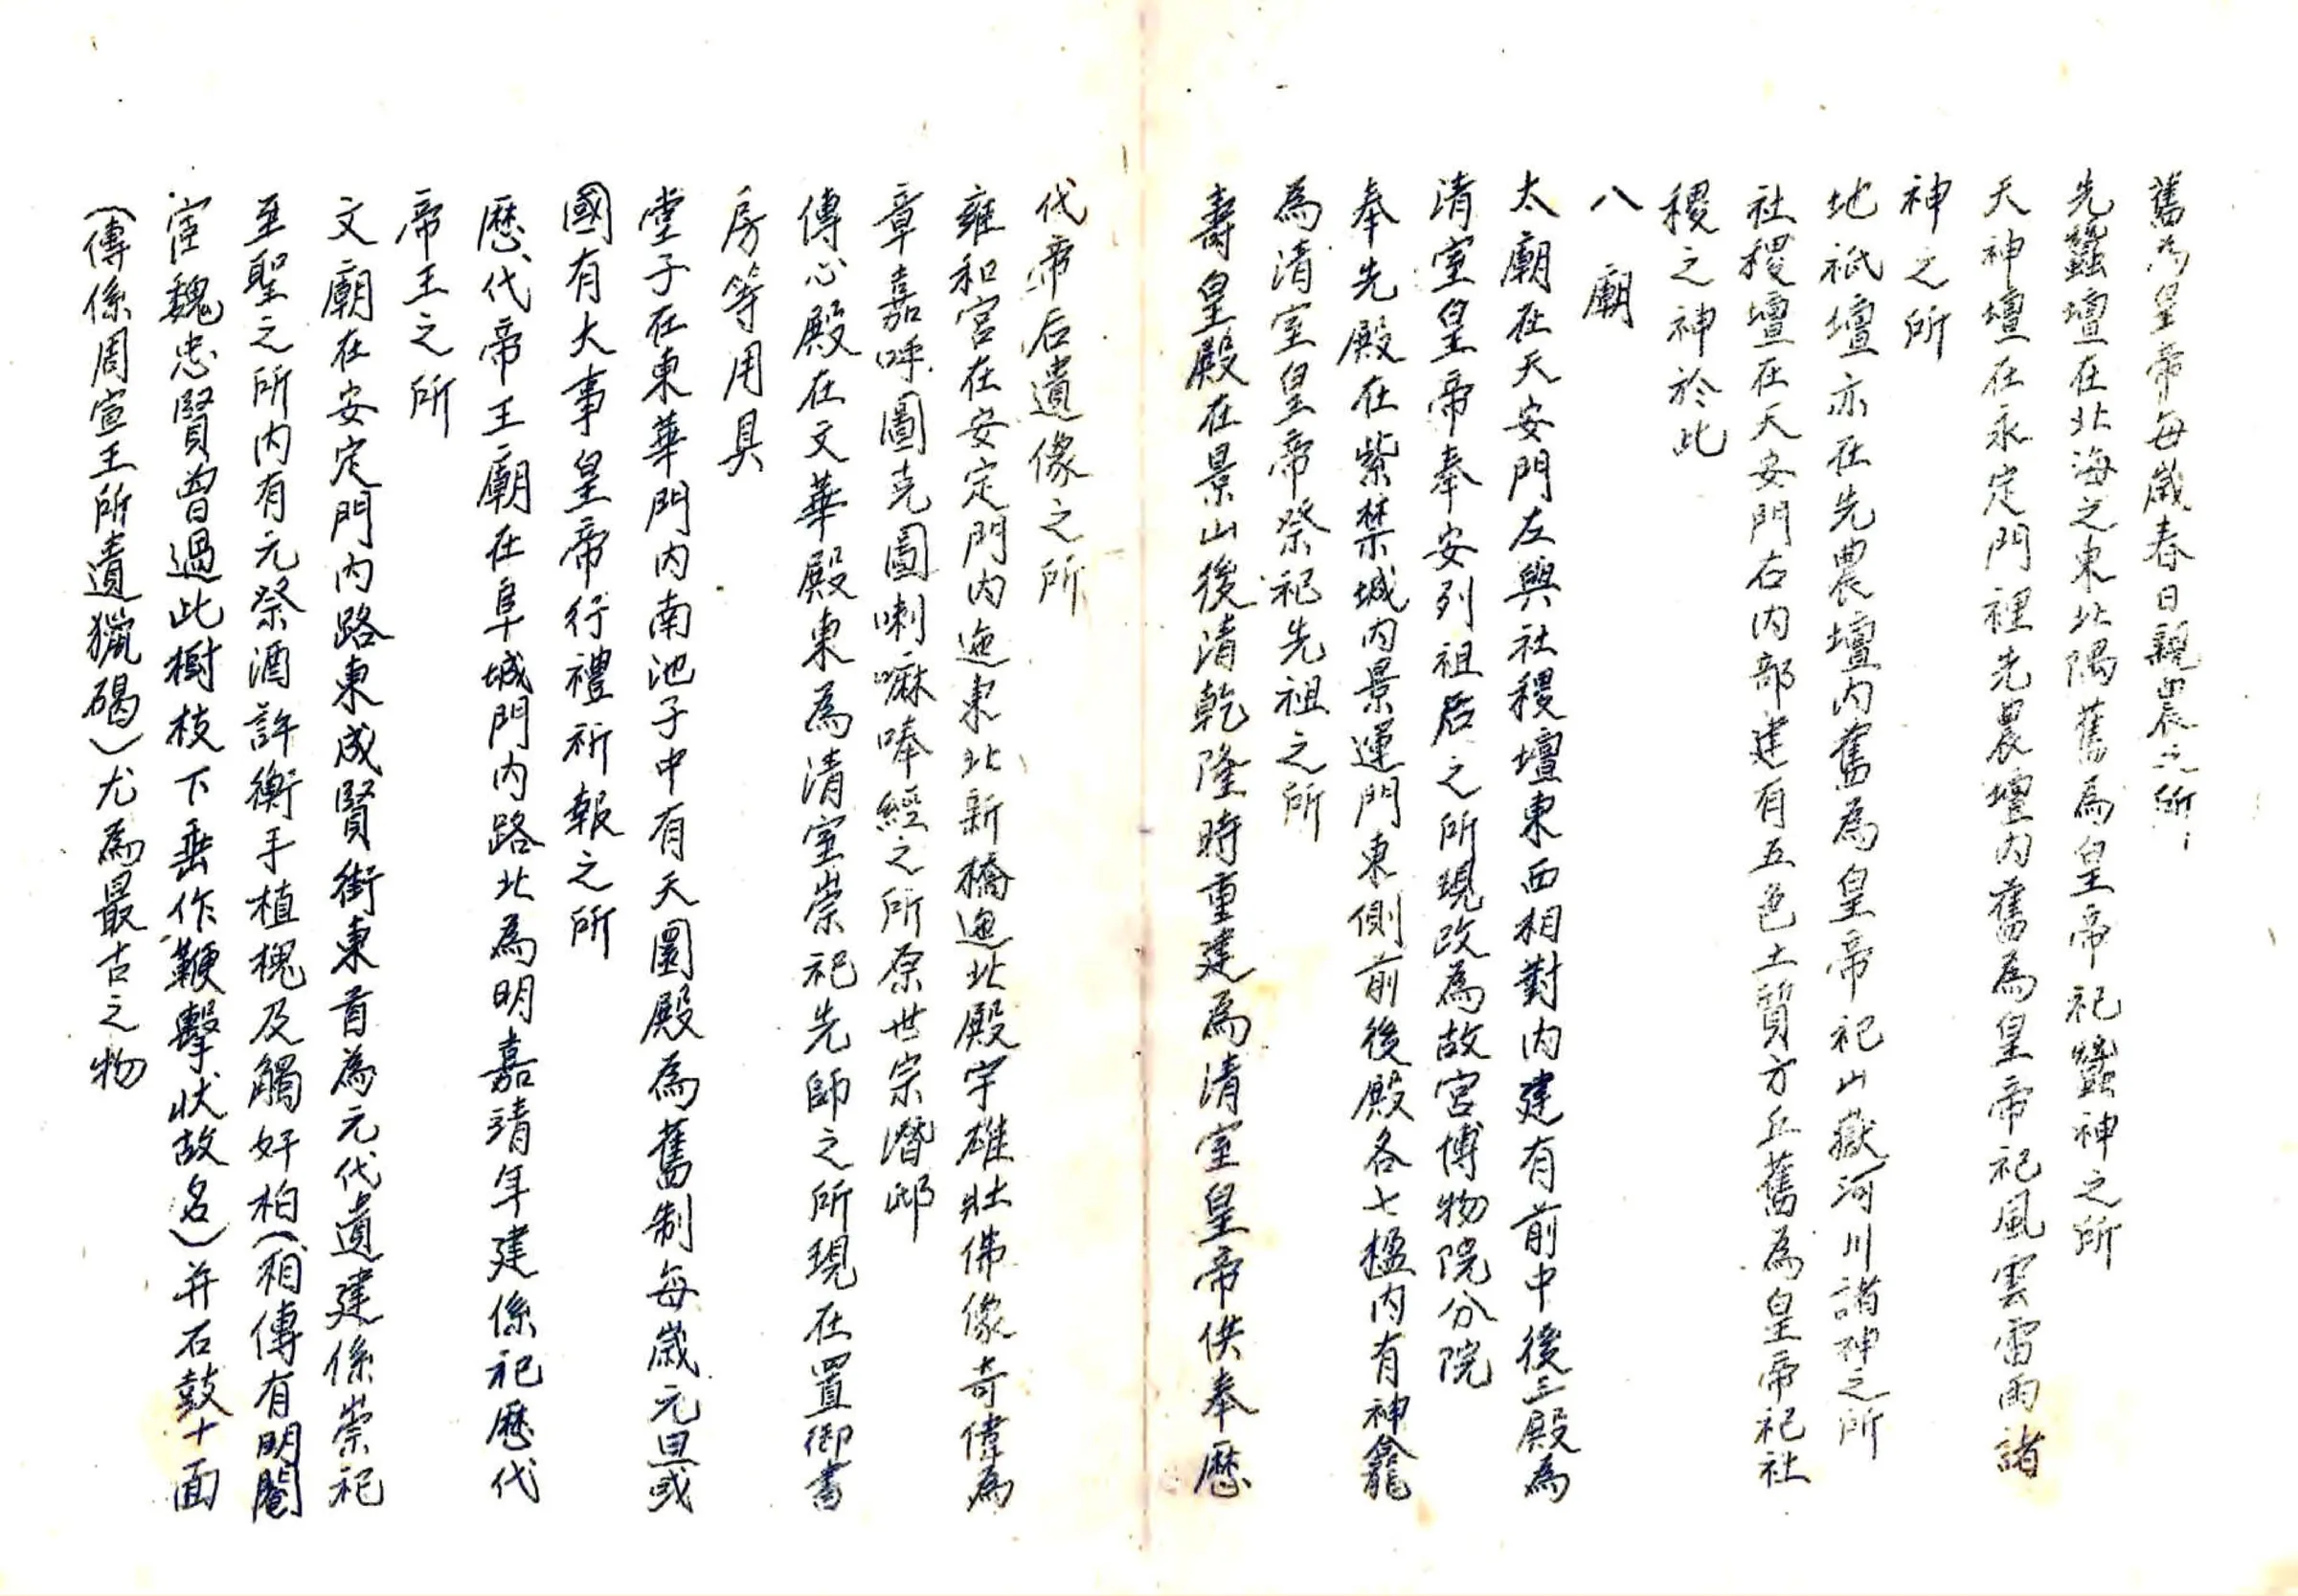 舊為皇帝每歲春日親農之所
先蠶壇在北海之東北隅舊為皇帝祀蠶神之所
天神壇在永定門裡先農壇內舊為皇帝祀風雲雷雨諸
神之所
地祇壇亦在先農壇內舊為皇帝祀山嶽河川諸神之所
社稷壇在天安門右內部建有五色土質方丘舊為皇帝祀社
稷之神於此
八廟
太廟在天安門左與社稷壇東西相對內建有前中後三殿為
清室皇帝奉安列祖后之所現改為故宮博物院分院
奉先殿在紫禁城內景運門東側前後殿各七楹內有神龕
為清室皇帝祭祀先祖之所
壽皇殿在景山後清乾隆時重建為清室皇帝供奉歷
代帝后遺像之所
雍和宮在安定門內迤東北新橋迤北殿宇雄壯佛像奇偉為
章嘉呼圖克圖喇嘛唪經之所原世宗潛邸
傳心殿在文華殿東為清室崇祀先師之所現在置御書
房等用具
堂子在東華門內南池子中有天圜殿為舊制每歲元旦或
國有大事皇帝行禮祈報之所
歷代帝王廟在阜城門內路北為明嘉靖年建係祀歷代
帝王之所
文廟在安定門內路東成賢街東首為元代遺建係崇祀
至聖之所內有元祭酒許衡手植槐及觸奸柏（相傳有明閹
宦魏忠賢曾過此樹枝下垂作鞭擊狀故名）并石鼓十面
（傳係周宣王所遺獵碣）尤為最古之物